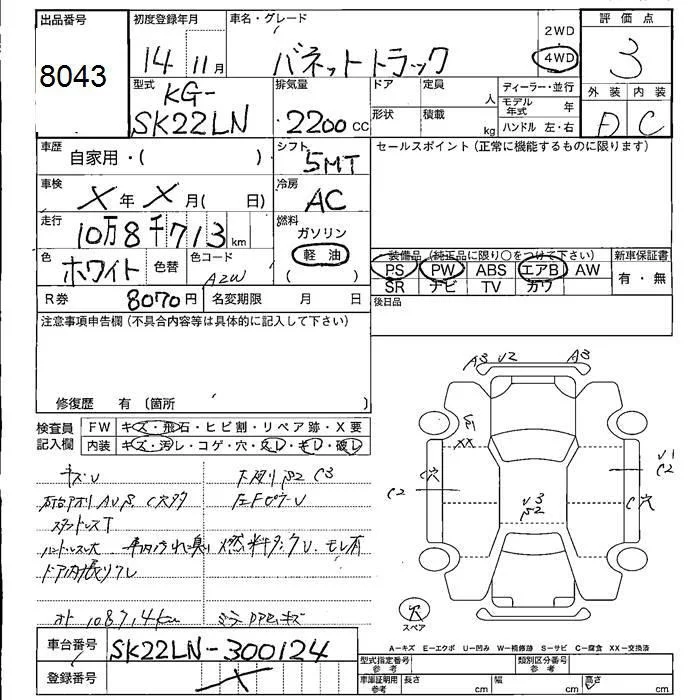 出品番号
8043
初度登録年月
14 11月
車名・グレード
バネットトラック
2WD
4WD
評価点
3
外装 内装
D C
型式
KG-
SK22LN
排気量
2200 cc
ドア 定員
人
形状 積載
kg
ディーラー・並行
モデル年式 年
ハンドル 左・右
車歴
自家用・( )
シフト
5MT
セールスポイント(正常に機能するものに限ります)
車検
X年X月( 日)
冷房
AC
走行
10万8千713 km
燃料
ガソリン
軽油
( )
色
ホワイト
色替
色コード
A2W
装備品 (純正品に限り○をつけて下さい)
PS PW ABS エアB AW
SR ナビ TV カワ
新車保証書
有・無
R券
8070円
名変期限 月 日
後日品
注意事項申告欄(不具合内容等は具体的に記入して下さい)
修復歴 有 〔箇所 〕
検査員
記入欄
FW キズ・飛石・ヒビ割・リペア跡・X要
内装 キズ・汚レ・コゲ・穴・スレ・キレ・破レ
キズU
下廻り S2 C3
C穴
スタンドレスT
ハンドルスレ大 車内汚れ臭い 燃料タンクU、モレ有
ドア内張りワレ
メーター 108714km
A3 U2 A3
XX
C穴
C2
U3
S2
C穴
U1
C2
穴
スペア
A－キズ E－エクボ U－凹み W－補修跡 S－サビ C－腐食 XX－交換済
車台番号
SK22LN-300124
登録番号
X
型式指定番号
参考
類別区分番号
参考
車庫証明用
参考
長さ cm
幅 cm
高さ cm